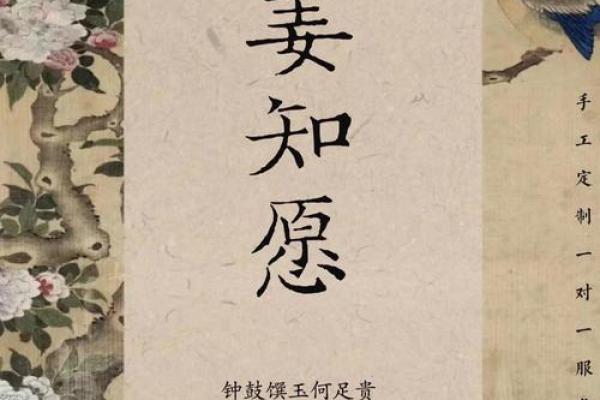 姜知愿
手工定制一对一服
钟鼓馔玉何足贵